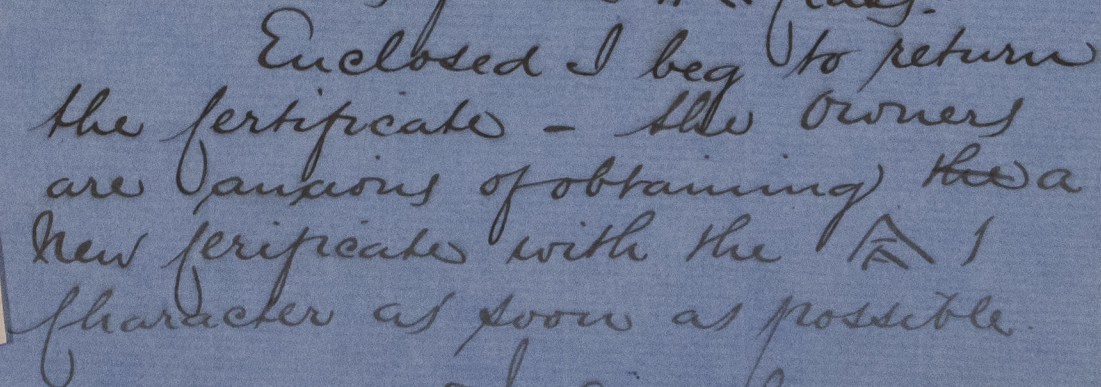 Enclosed I beg to return
the Certificate - the Owners
are anxious of obtaining the a
New Cerificate with the A 1
Character as soon as possible